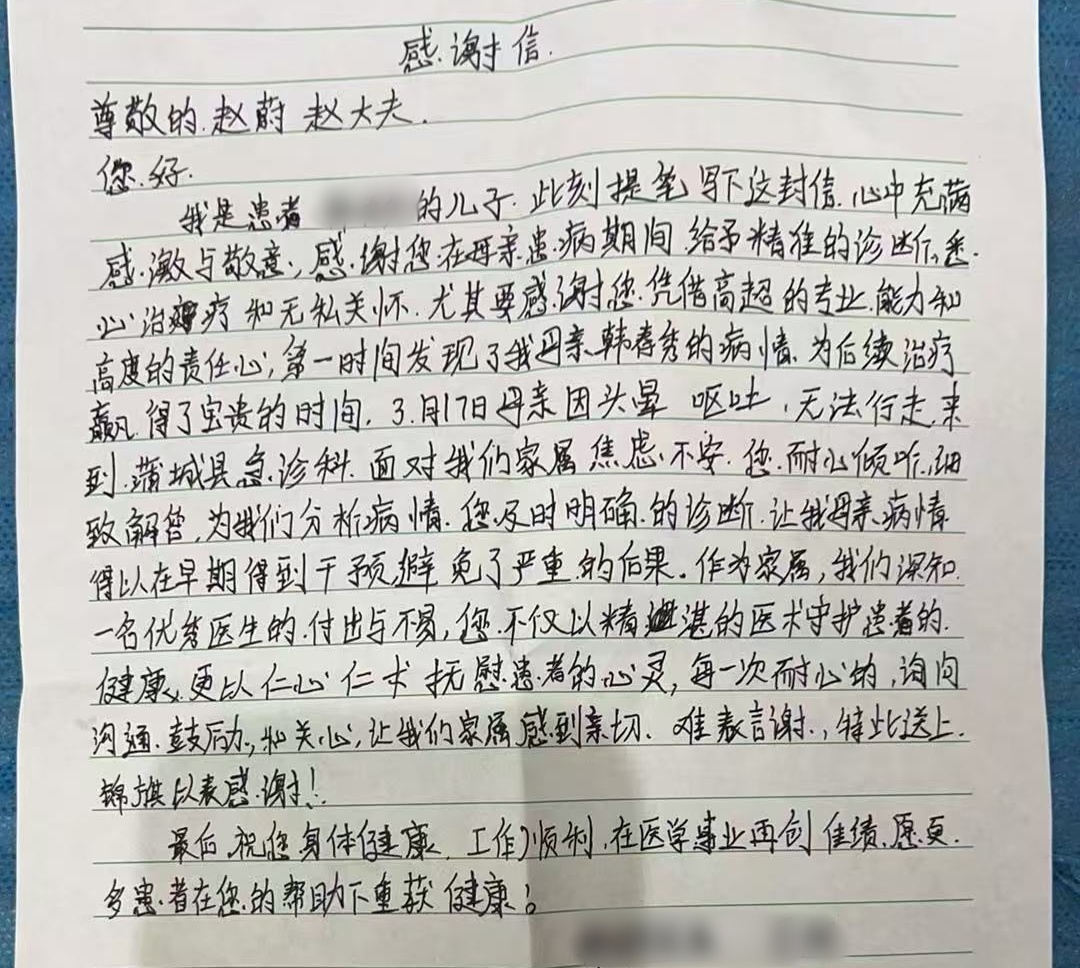 感谢信.
尊敬的.赵蔚 赵大夫.
您.好.
我是患者 的儿子.此刻提笔写下这封信.心中充满
感激与敬意,感谢您在母亲患病期间.给予精准的诊断、悉
心治疗和无私关怀.尤其要感谢您.凭借高超的专业能力和
高度的责任心,第一时间发现了我母亲韩春秀的病情.为后续治疗
赢得了宝贵的时间.3月17日母亲因头晕 呕吐.无法行走.来
到.蒲城县急诊科.面对我们家属焦虑不安.您.耐心倾听.细
致解答,为我们分析病情.您及时明确的诊断.让我母亲病情
得以在早期得到干预避免了严重的后果。作为家属,我们深知.
一名优秀医生的.付出与不易,您.不仅以精湛的医术守护患者的.
健康.更以仁心仁术抚慰患者的心灵,每一次耐心的,询问
沟通.鼓励,和关心,让我们家属感到亲切.难表言谢.,特此送上.
锦旗以表感谢!
最后.祝您身体健康.工作顺利,在医学事业再创佳绩.愿更.
多患者在您的帮助下重获健康!